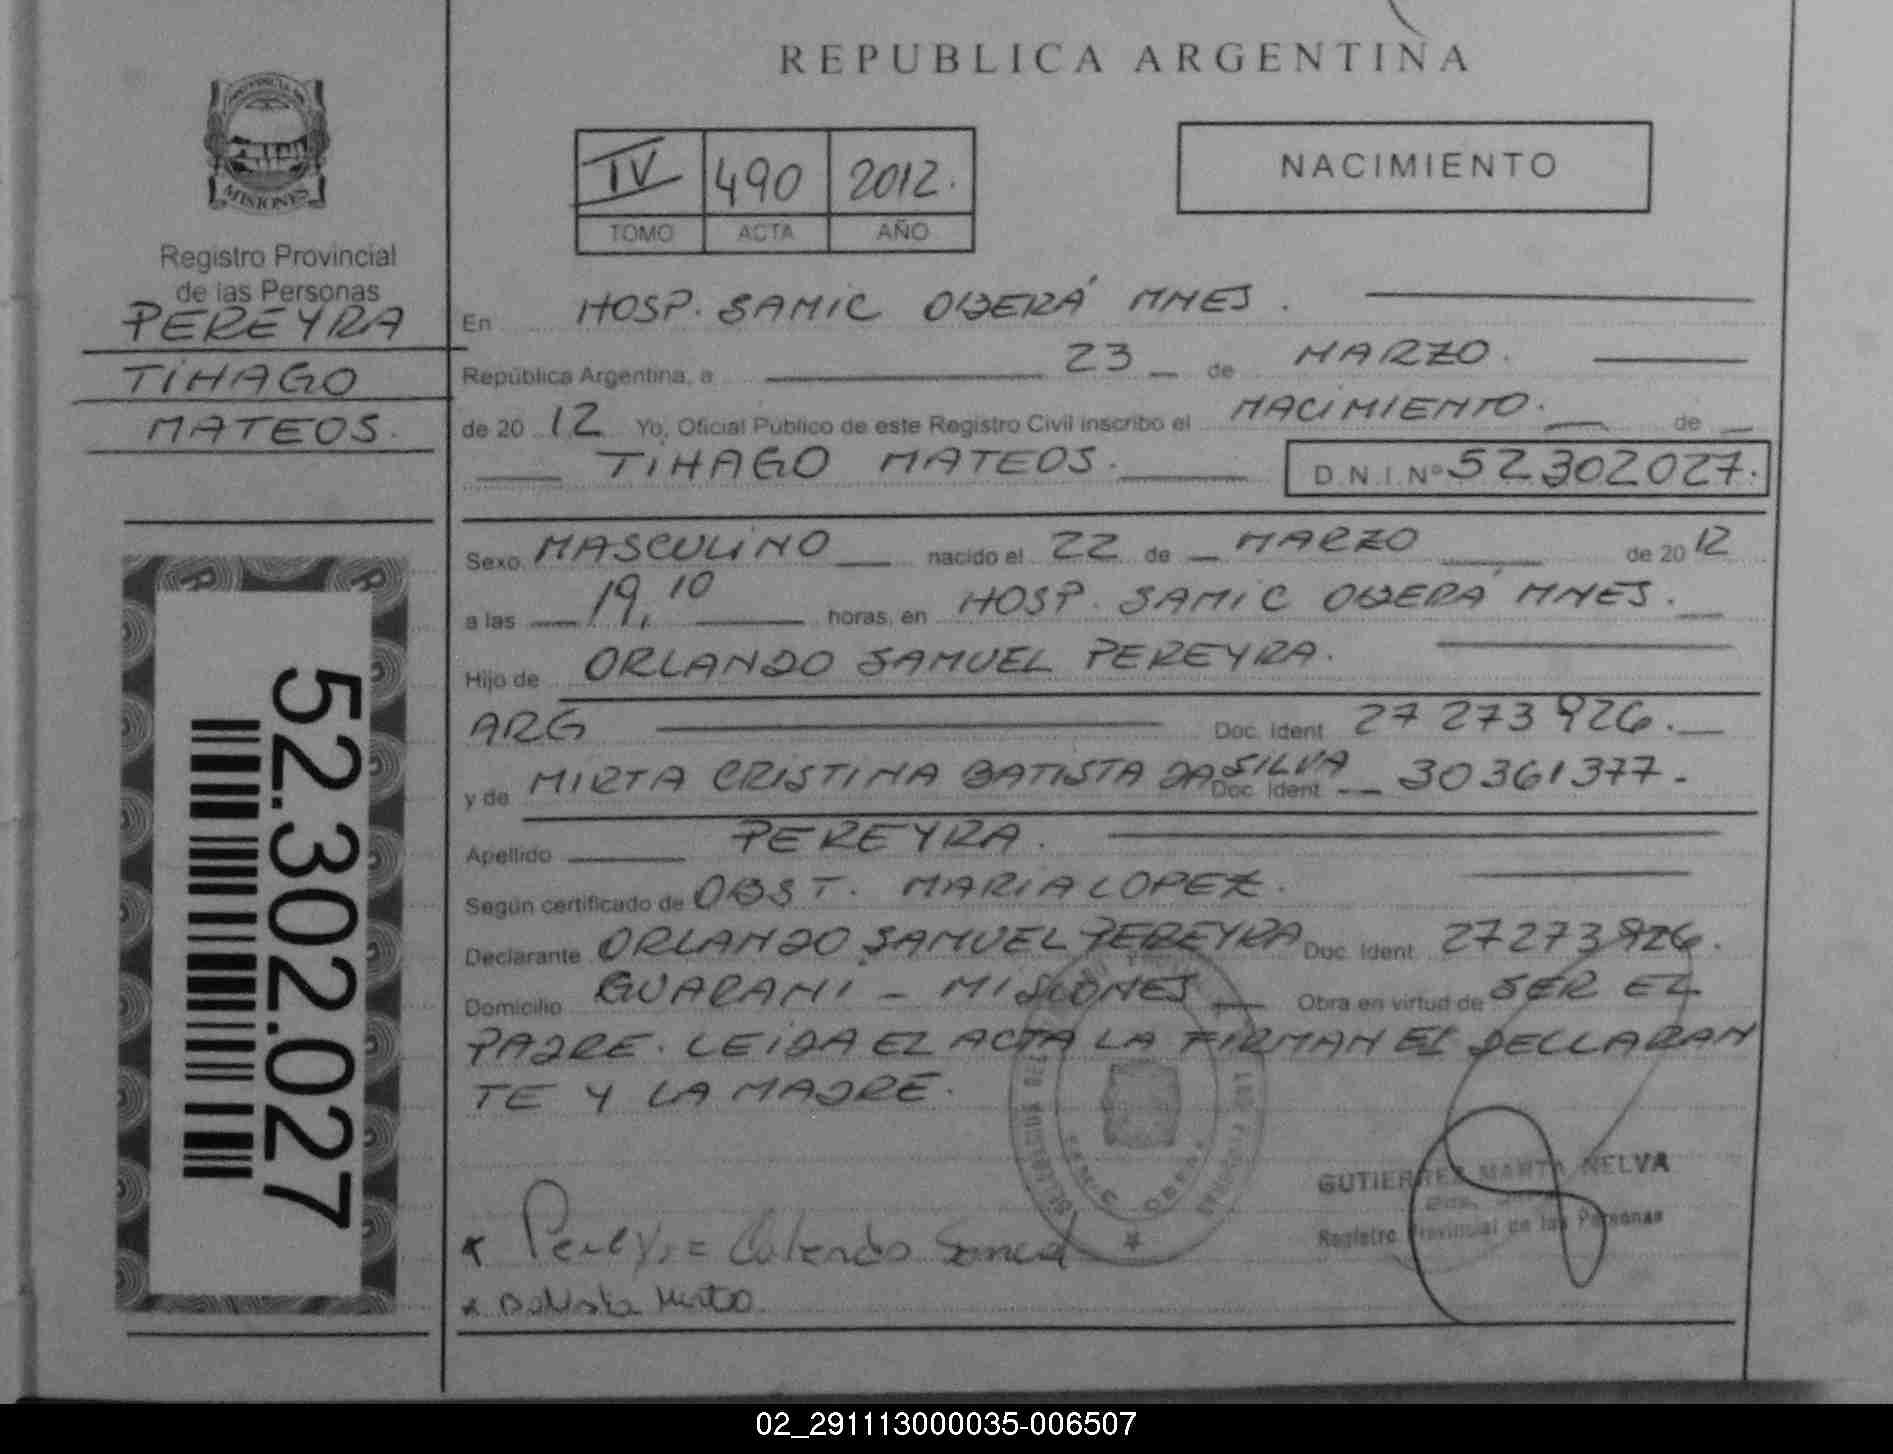 REPUBLICA ARGENTINA
PROVINCIA DE
MISIONES
Registro Provincial
de las Personas
PEREYRA
TIHAGO
MATEOS.
52.302.027
IV 490 2012.
TOMO ACTA AÑO
NACIMIENTO
En HOSP. SAMIC OBERÁ MNES.
República Argentina, a 23 de MARZO.
de 2012 Yo, Oficial Público de este Registro Civil inscribo el NACIMIENTO. de
TIHAGO MATEOS. D.N.I. Nº 52302027.
Sexo MASCULINO nacido el 22 de MARZO de 2012
a las 19,10 horas, en HOSP. SAMIC OBERÁ MNES.
Hijo de ORLANDO SAMUEL PEREYRA.
ARG Doc. Ident. 27 273 926.
y de MIRTA CRISTINA BATISTA DA SILVA Doc. Ident. 30361377.
Apellido PEREYRA.
Según certificado de OBST. MARIA LOPEZ.
Declarante ORLANDO SAMUEL PEREYRA Doc. Ident. 27273926.
Domicilio GUARANI - MISIONES Obra en virtud de SER EL
PADRE. LEIDA EL ACTA LA FIRMAN EL DECLARAN
TE Y LA MADRE.
GUTIERREZ MARTA NELVA
Registro Provincial de las Personas
x Batista Mirta
02_291113000035-006507